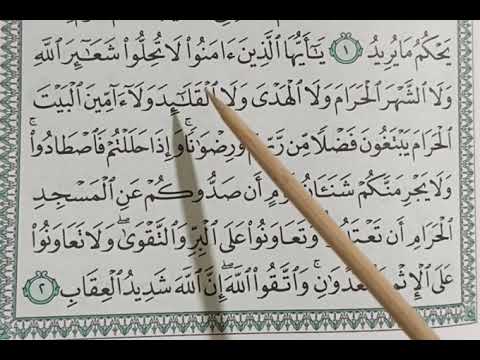 يَحْكُمُ مَا يُرِيدُ ١ يَٰٓأَيُّهَا ٱلَّذِينَ ءَامَنُوا۟ لَا تُحِلُّوا۟ شَعَٰٓئِرَ ٱللَّهِ
وَلَا ٱلشَّهْرَ ٱلْحَرَامَ وَلَا ٱلْهَدْىَ وَلَا ٱلْقَلَٰٓئِدَ وَلَآ ءَآمِّينَ ٱلْبَيْتَ
ٱلْحَرَامَ يَبْتَغُونَ فَضْلًا مِّن وَرِضْوَٰنًا ۚ وَإِذَا حَلَلْتُمْ فَٱصْطَادُوا۟ ۚ
وَلَا يَجْرِمَنَّكُمْ شَنَـَٔانُ أَن صَدُّوكُمْ عَنِ ٱلْمَسْجِدِ
ٱلْحَرَامِ أَن وَتَعَاوَنُوا۟ عَلَى ٱلْبِرِّ وَٱلتَّقْوَىٰ ۖ وَلَا تَعَاوَنُوا۟
عَلَى ٱلْإِثْمِ ۚ وَٱتَّقُوا۟ ٱللَّهَ ۖ إِنَّ ٱللَّهَ شَدِيدُ ٱلْعِقَابِ ٢